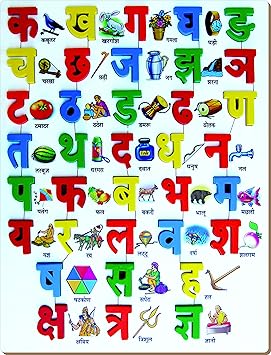 क ख ग घ ङ
कबूतर खरगोश गमला घड़ी
च छ ज झ ञ
चरखा छड़ी जग झरना
ट ठ ड ढ ण
टमाटर ठठेरा डमरू ढोलक
त थ द ध न
तरबूज थरमस दवात धनुष नल
प फ ब भ म
पतंग फल बकरी भालू मछली
य र ल व श
यज्ञ रथ लट्टू वन शलगम
ष स ह
षटकोण सपेरा हल
क्ष त्र ज्ञ
क्षत्रिय त्रिशूल ज्ञानी